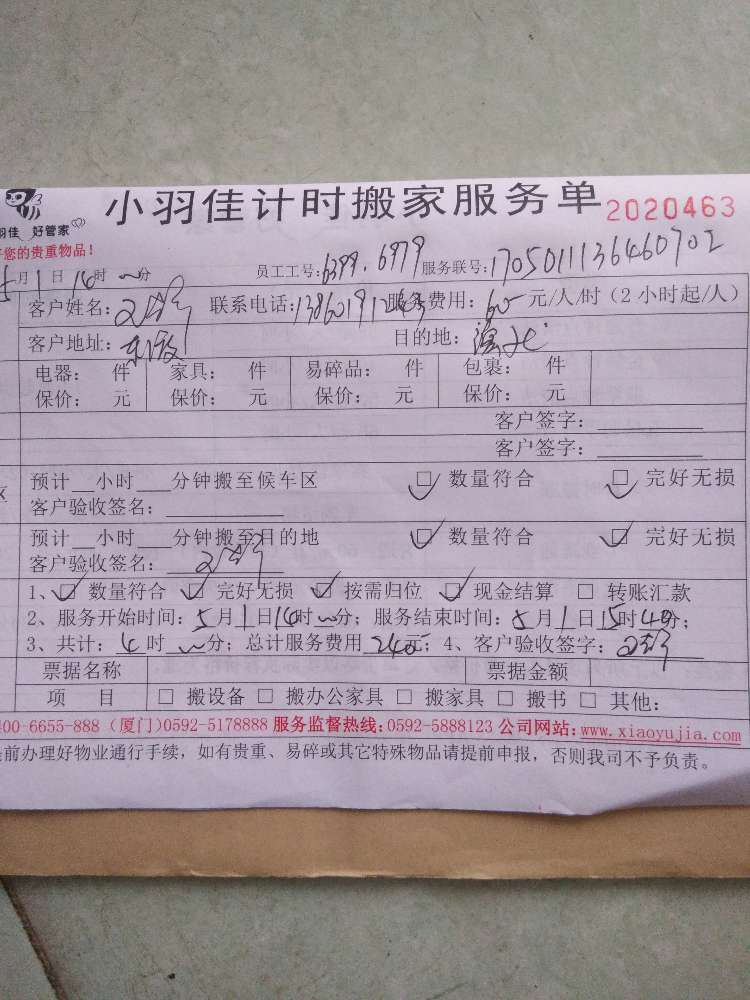 小羽佳计时搬家服务单 2020463
羽佳 好管家
您的贵重物品！
5月1日14时~分 员工工号：6399.6979 服务联号：1705011136460702
客户姓名： 联系电话： 服务费用：60元/人/时（2小时起/人）
客户地址：东渡 目的地：
电器： 件 家具： 件 易碎品： 件 包裹： 件
保价： 元 保价： 元 保价： 元 保价： 元
客户签字：
客户签字：
预计__小时___分钟搬至候车区 ☑ 数量符合 ☑ 完好无损
区 客户验收签名：
预计__小时___分钟搬至目的地 ☑ 数量符合 ☑ 完好无损
客户验收签名：
1、☑ 数量符合 ☑ 完好无损 ☑ 按需归位 ☑ 现金结算 □ 转账汇款
2、服务开始时间：5月1日14时~分；服务结束时间：5月1日15时40分；
3、共计：4时~分；总计服务费用240元；4、客户验收签字：
票据名称 票据金额
项 目 □ 搬设备 □ 搬办公家具 □ 搬家具 □ 搬书 □ 其他：
400-6655-888（厦门）0592-5178888 服务监督热线：0592-5888123 公司网站：www.xiaoyujia.com
前办理好物业通行手续，如有贵重、易碎或其它特殊物品请提前申报，否则我司不予负责。